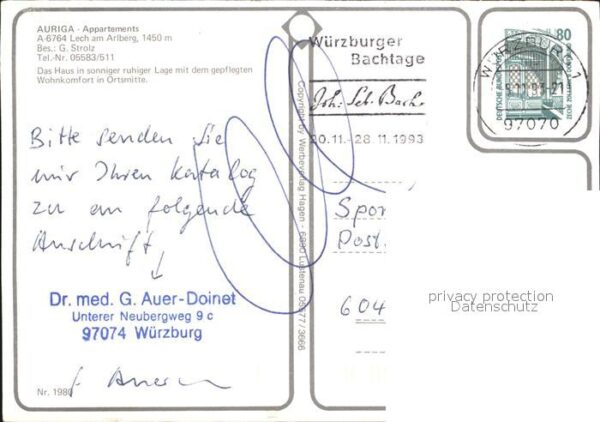 AURIGA - Appartements
A-6764 Lech am Arlberg, 1450 m
Bes.: G. Strolz
Tel.-Nr. 05583/511
Das Haus in sonniger ruhiger Lage mit dem gepflegten
Wohnkomfort in Ortsmitte.
Bitte senden Sie
mir Ihren Katalog
zu an folgende
Anschrift
Dr. med. G. Auer-Doinet
Unterer Neubergweg 9 c
97074 Würzburg
Nr. 1980
Copyright by Werbeverlag Hagen - 6890 Lustenau 05577/3666
Würzburger
Bachtage
Joh. Seb. Bach
20.11.-28.11.1993
WÜRZBURG 1
97070
80
DEUTSCHE BUNDESPOST
Spor
Post.
604
privacy protection
Datenschutz